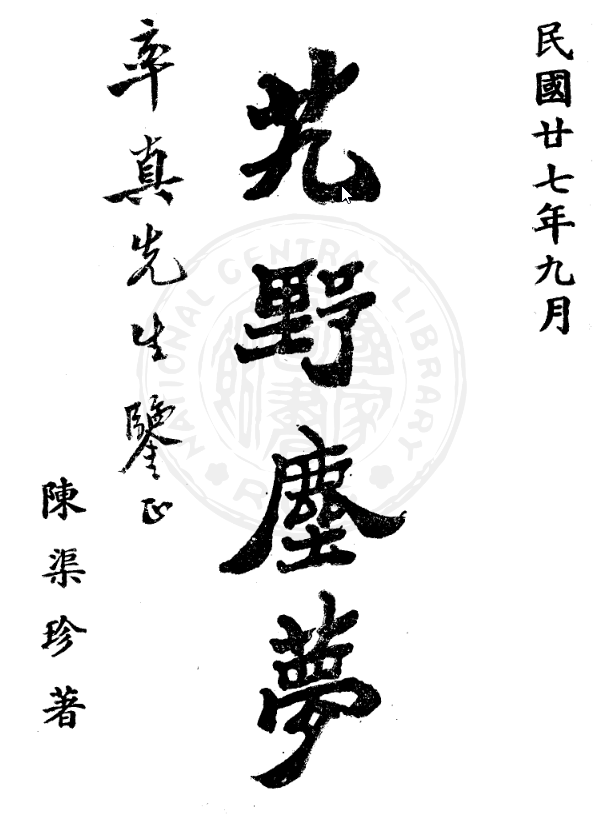 民國廿七年九月
艽野塵夢
率真先生鑒正
陳渠珍著
NATIONAL CENTRAL LIBRARY